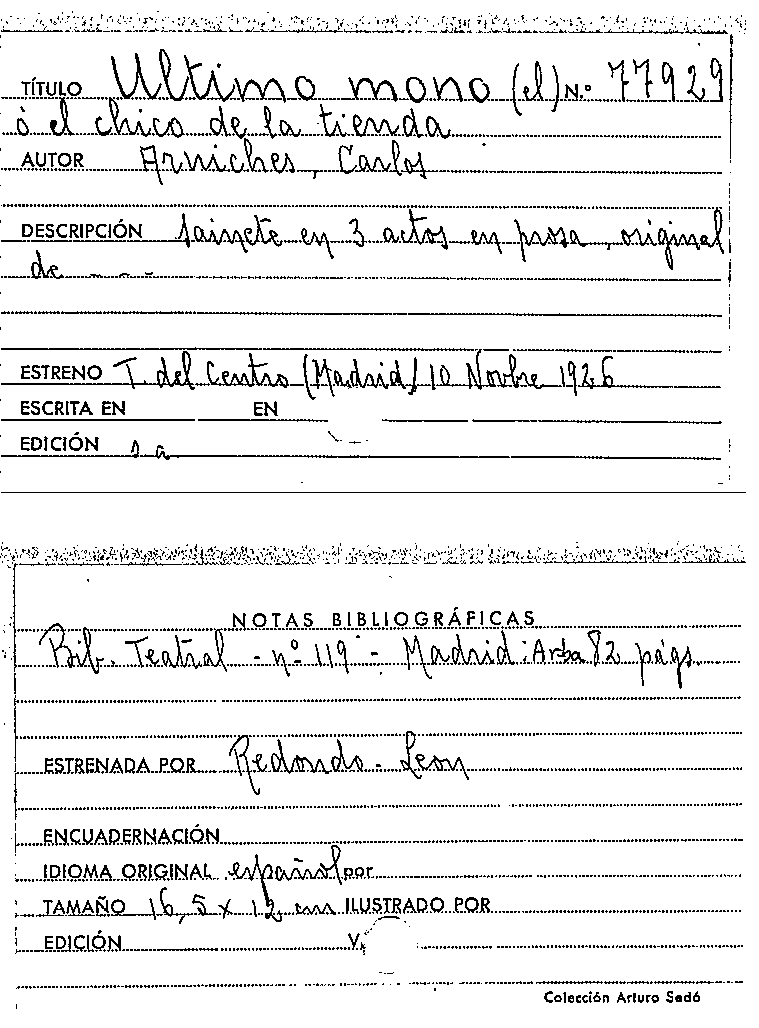 TÍTULO Ultimo mono (el) N.º 77929
ó el chico de la tienda
AUTOR Arniches, Carlos
DESCRIPCIÓN Sainete en 3 actos en prosa, original
de - - -
ESTRENO T. del Centro (Madrid) 10 Novbre 1926
ESCRITA EN EN
EDICIÓN s a
NOTAS BIBLIOGRÁFICAS
Bib. Teatral - nº 119 - Madrid: Arba 82 págs.
ESTRENADA POR Redondo - Leon
ENCUADERNACIÓN
IDIOMA ORIGINAL español por
TAMAÑO 16,5 x 12 cm ILUSTRADO POR
EDICIÓN V.
Colección Arturo Sedó